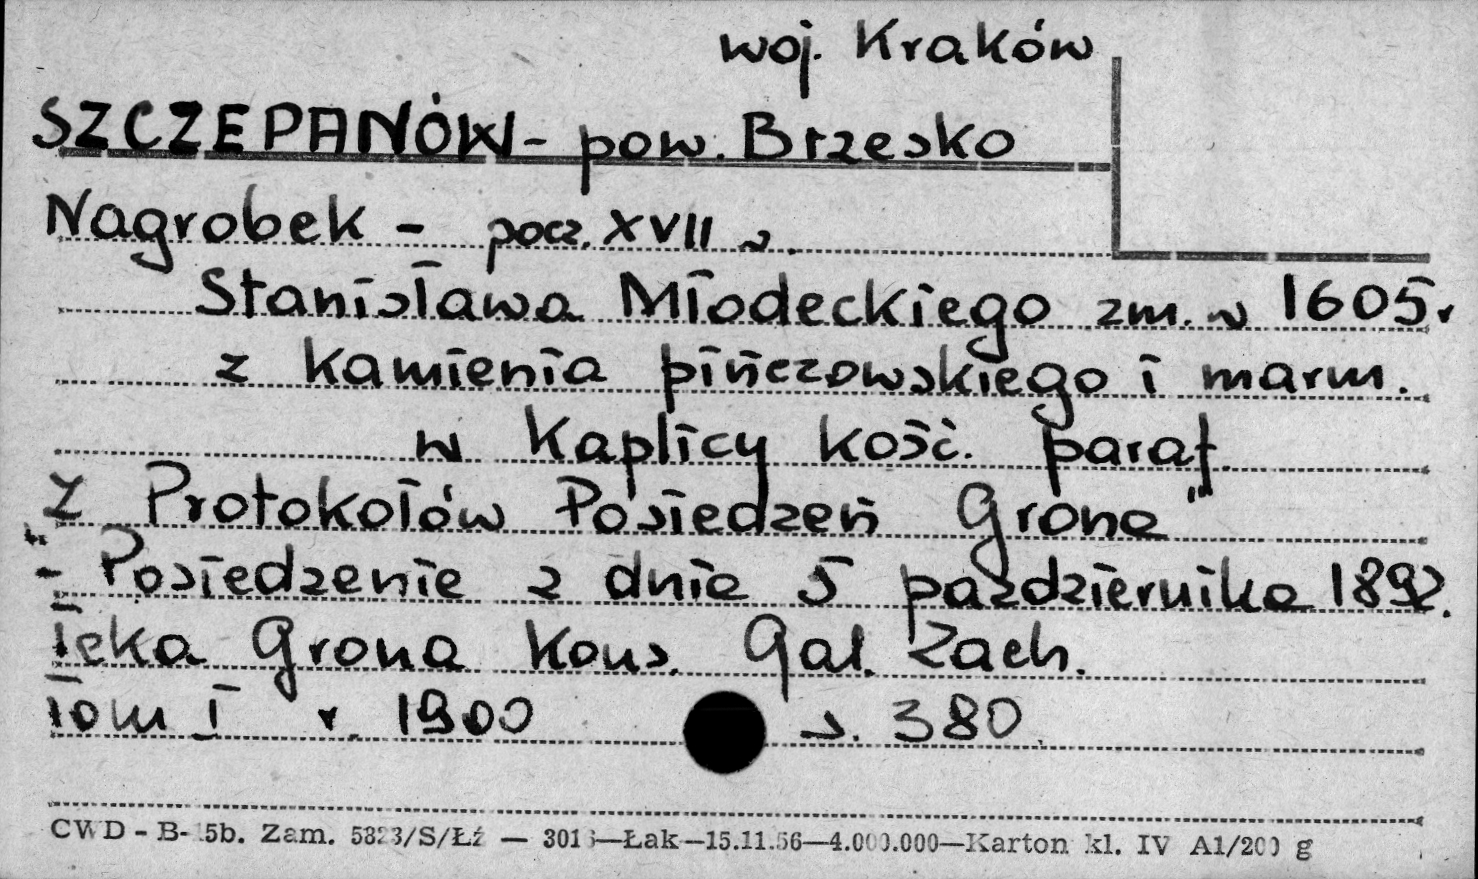 woj. Kraków
SZCZEPANÓW - pow. Brzesko
Nagrobek - pocz. XVII w.
Stanisława Młodeckiego zm. w 1605 r
z kamienia pińczowskiego i marm.
w Kaplicy kość. paraf.
Z "Protokołów Posiedzeń Grona"
- Posiedzenie z dnia 5 października 1892.
Teka Grona Kons. Gal. Zach.
Tom I r. 1900 s. 380
CWD - B- 5b. Zam. 5823/S/Łź — 3016—Łak—15.11.56—4.000.000—Karton kl. IV A1/200 g